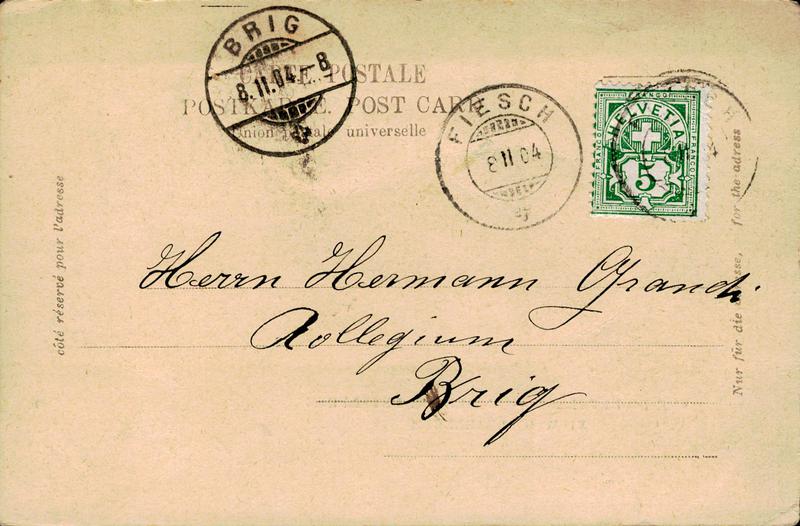 BRIG
8.II.04.–8
CARTE POSTALE
POSTKARTE. POST CARD
Union postale universelle
FIESCH
8 II 04
FRANCO
HELVETIA
FRANCO
FRANCO
5
côté réservé pour l'adresse
Nur für die Adresse, for the adress
Herrn Hermann Grandi
Kollegium
Brig